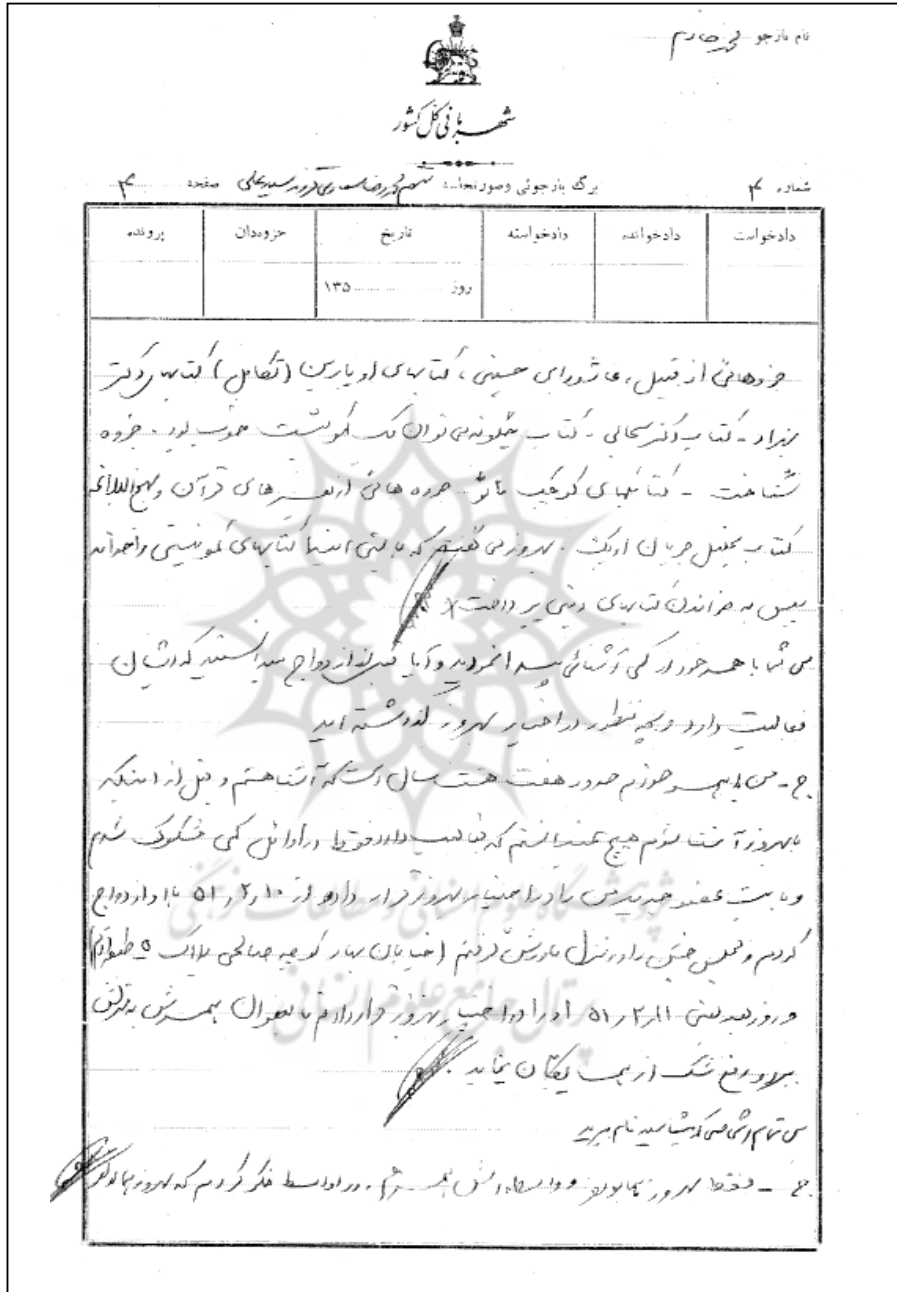 نام بازجو
شهربانی کل کشور
شماره ۴ برگ بازجوئی وصورتجلسه متهم فرزند سیدعلی صفحه ۴
دادخواست دادخوانده دادخواسته تاریخ جزوه‌دان پرونده
روز ۱۳۵
جزوهائی از قبیل، عاشورای حسینی، کتابهای اوپارین (تکامل) کتابهای دکتر
بهزاد - کتاب دکتر سحابی - کتاب چگونه می توان یک کمونیست خوب بود - جزوه
شناخت - کتابهای کوچک مائو جزوه هائی از تفسیرهای قرآن و نهج البلاغه
کتاب تحلیل جریان اوپک. بهروز می گفت که بایستی ابتدا کتابهای کمونیستی را خواند
سپس به خواندن کتابهای دینی پرداخت
س شما با همسر خود از کی آشنائی پیدا نمودید و آیا قبل از ازدواج میدانستید که ایشان
فعالیت دارد و بچه منظور در اختیار بهروز گذوشته اید
ج - من با همسر خودم حدود هفت هشت سال است که آشنا هستم و قبل از اینکه
با بهروز آشنا شوم هیچ نمیدانستم که فعالیت دارد فقط در اوائل کمی مشکوک شدم
و بابت عقد را در اختیار بهروز قرار دادم از ۱۰ر۲ر۵۱ با او ازدواج
کردم و مجلس جشن را در منزل مادرش گرفتم (خیابان بهار کوچه صالحی پلاک ۵ طبقه
و روز بعد یعنی ۱۱ر۲ر۵۱ او را در اختیار بهروز قرار دادم تا بعنوان همسرش به منزلش
ببرد و رفع شک از همسایگان نماید.
س تمام اشخاصی که میشناسید نام ببرید
ج - فقط بهروز و همسرم، در اواسط فکر کردم که بهروز